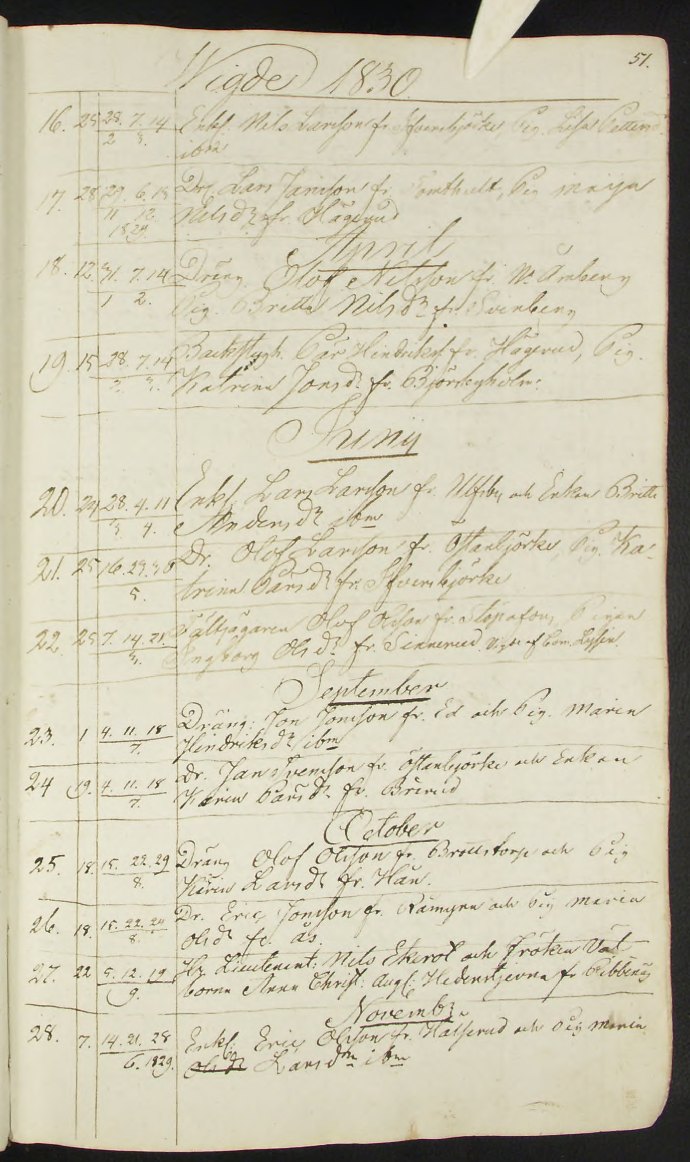 51.
Wigde 1830
16. 25 28. 7. 14 Enkl. Nils Larsson fr. Elfvensbjörke, Pig. Lisa
2 3. ibm
17. 28 29. 6. 13 Drg Lars Jansson fr. Tomthult, Pig Maija
11 12. Nilsdr fr. Hägerud
1829.
April
18. 12. 31. 7. 14 Dräng Olof Nilsson fr. N. Amberg
1 2. Pig. Britta Nilsdr fr. Svenberg
19. 15 28. 7. 14 Backstugh. Pär Hindriks. fr. Hägerud, Pig.
2. 3. Katrina Jonsdr fr. Björkeholm.
Juny
20. 24 28. 4. 11 Enkl. Lars Larsson fr. Ulfsby och Enkan Britta
3 4. Andersdr ibm
21. 25 16. 23. 30 Dr. Olof Larsson fr. Östanbjörke, Pig. Ka-
5. trina Parsdr fr. Elfvensbjörke
22 25 7. 14. 21. Fältjägaren Olof Olsson fr. Stopafors, Pigan
3. Ingborg Olsdr fr. Sinnerud Vigde af Com.
September
23. 1 4. 11. 18 Dräng: Jon Jonsson fr. Ed och Pig. Maria
7. Hindriksdr ibm
24 19. 4. 11. 18 Dr. Jan Svensson fr. Östanbjörke och Enkan
7. Karin Parsdr fr. Brerud
October
25. 18. 15. 22. 29 Dräng Olof Olsson fr. Brattstorp och Pig
8. Karin Larsdr fr. Hån.
26. 18. 15. 22. 29 Dr. Eric Jonsson fr. Rämyra och Pig Maria
8. Olsdr fr. Ås.
27. 22 5. 12. 19 Hr Lieutenent. Nils Ekerot och Fröken Väl-
9. borna Anna Christ: Aug: Hedenstjerna fr. Ribberg
Novembr
28. 7. 14. 21. 28 Enkl: Eric Olsson fr. Halserud och Pig Maria
6. 1829. Olsdr Larsdr ibm